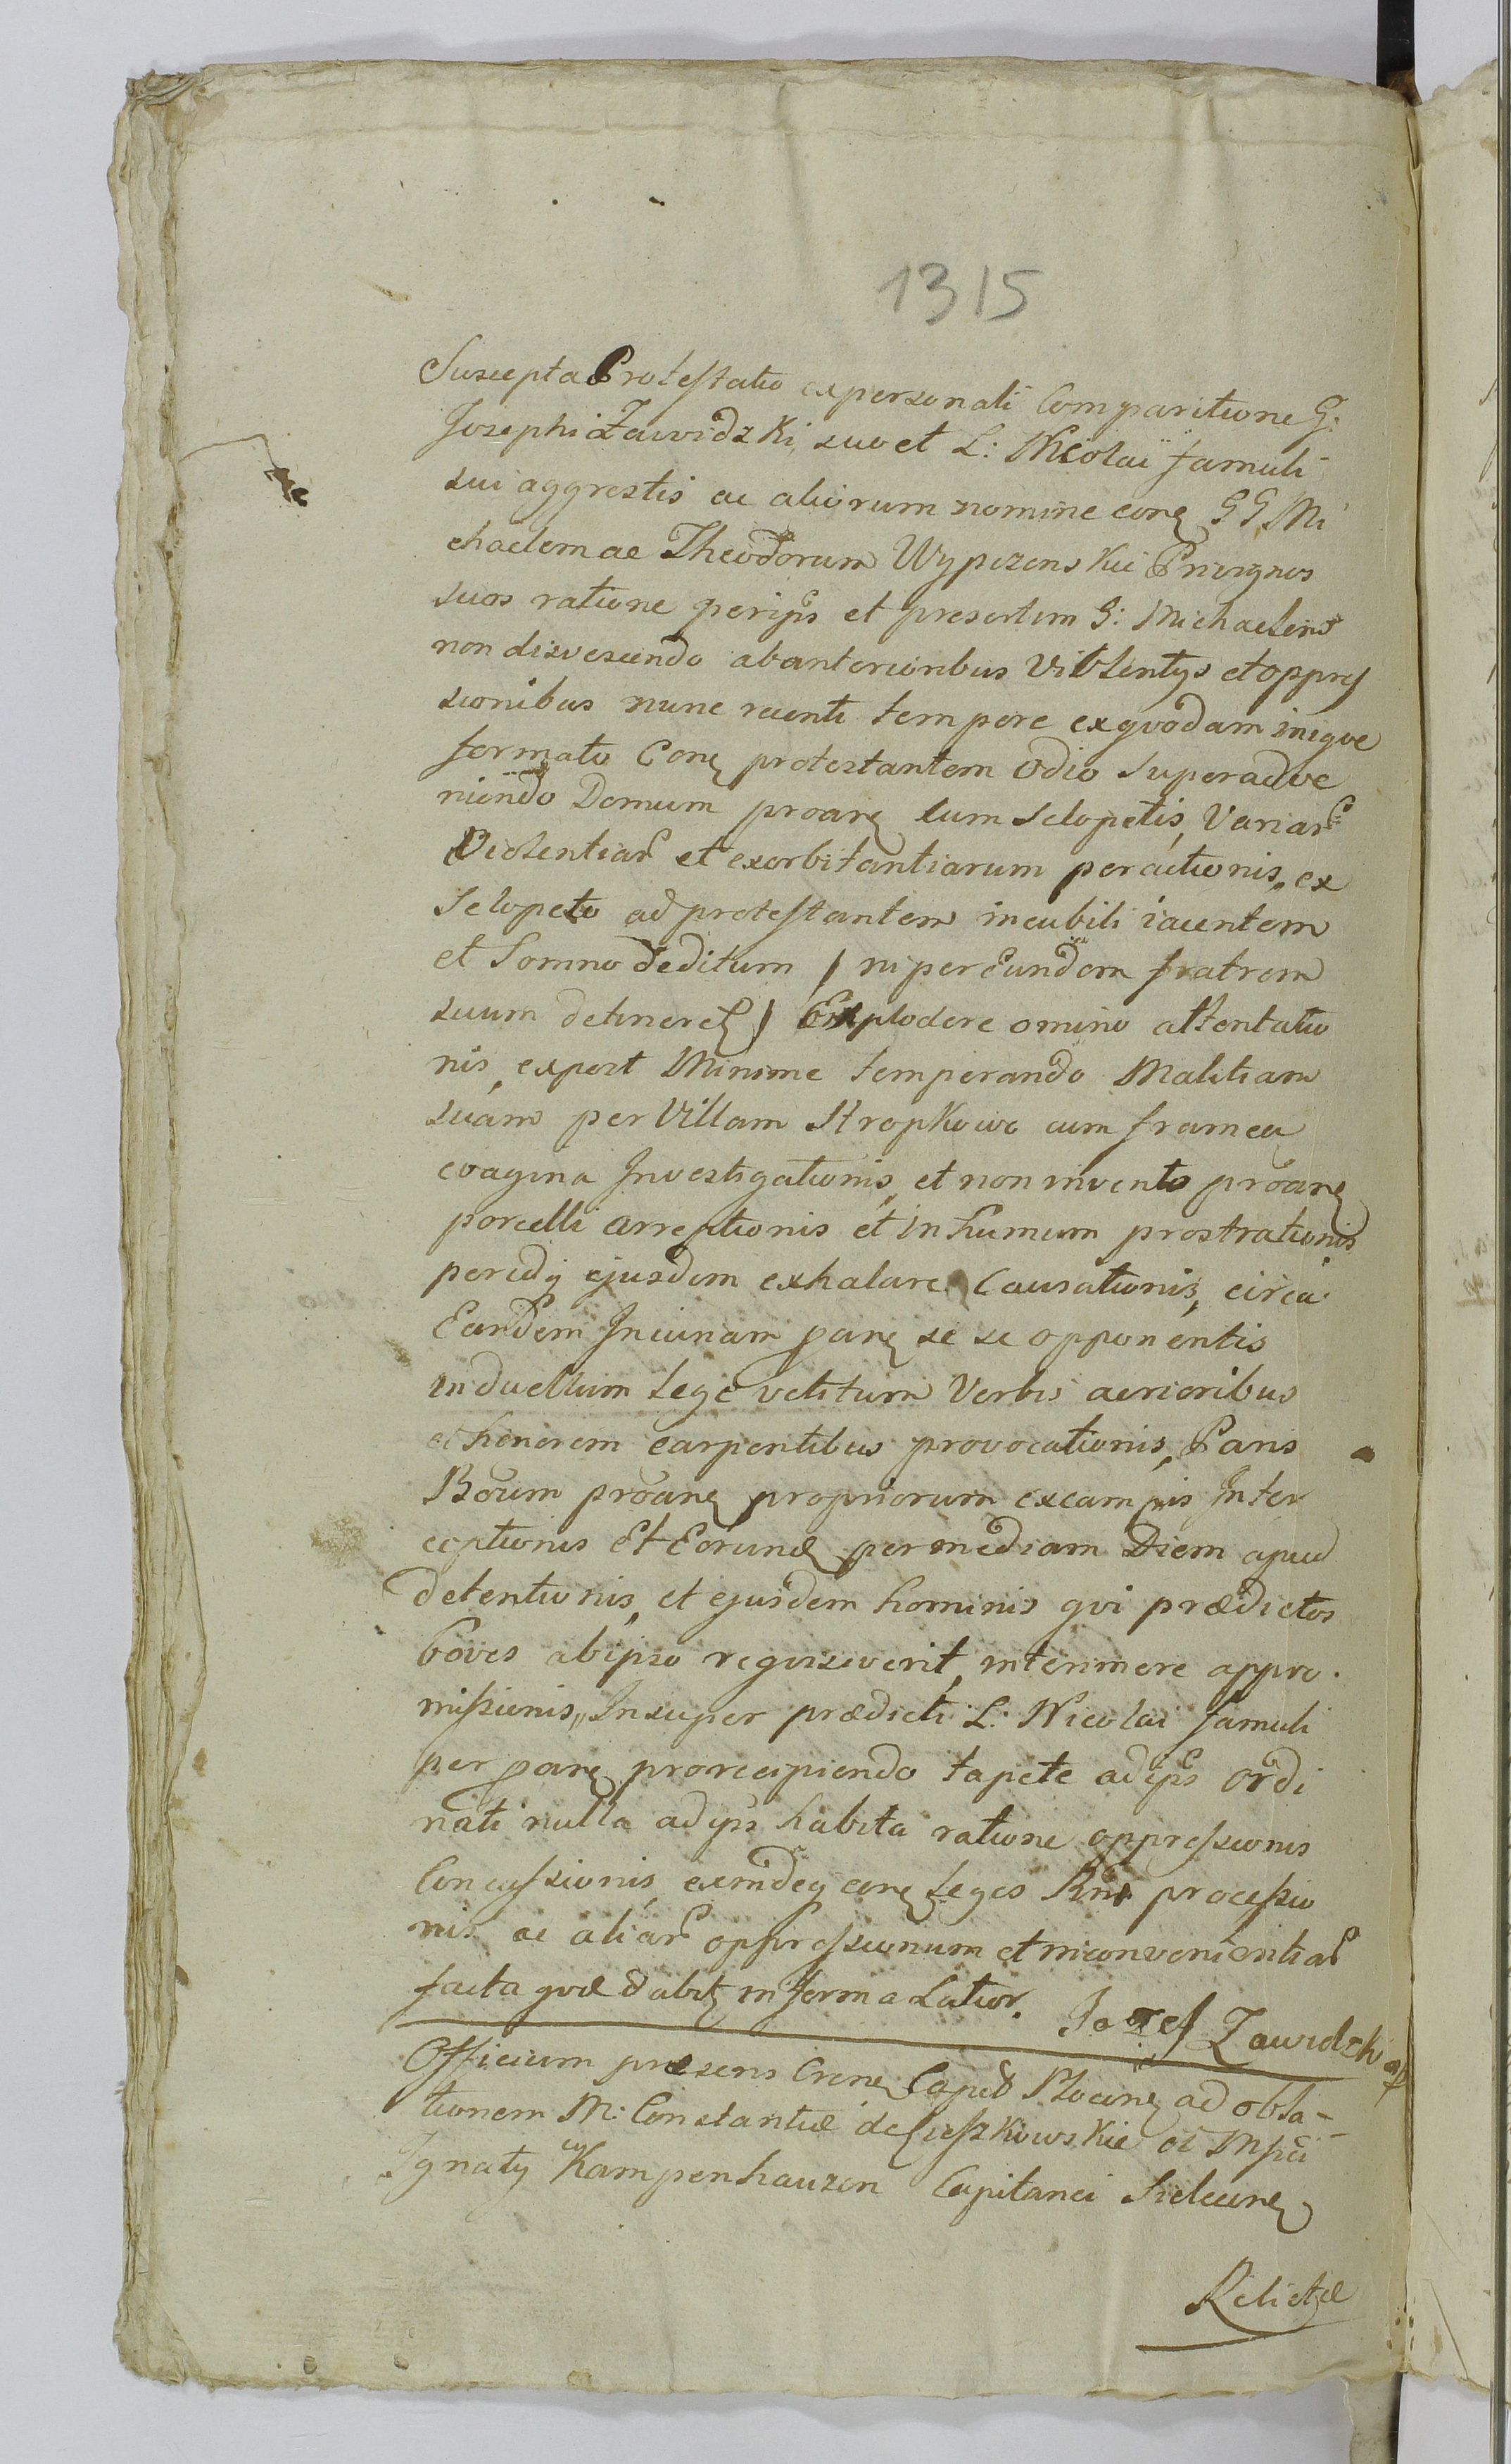 1315
Suscepta Protestatio ex personali Comparitione G:
Josephi Zawidzki, suo et L: Nicolai famuli
sui aggrestis ac aliorum nomine conę GG Mi
chaelem ac Theodorum Wypczenskie Privignos
suos ratione per ips et presertim G: Michaelem
non disvescendo ab anterioribus Violentys et oppres
sionibus nunc recenti tempore ex qvodam iniqve
formato Conę protestantem Odio Superadve
niendo Domum proanę cum Sclopetis, Variar
Violentiar et exorbitantiarum peractionis, ex
Sclopeto ad protestantem in cubili iacentem
et Somno deditum / ni per Eundem fratrem
suum detineret / Explodere omino attentatio
nis, expost Minime temperando Malitiam
suam per Villam Stropkowo cum framea
evagina Investigationis, et non invento proanę
porcelli arreptionis et in humum prostrationis
per idq ejusdem exhalare Causationis, circa
Eandem Incunam panę se se opponentis
in duellum lege vetitum Verbis acrioribus
et honorem carpentibus provocationis, Paris
Boum proanę propriorum ex campis Inter
ceptionis Et Eorundę per mediam Diem apud
detentionis, et ejusdem hominis qvi prædictos
boves ab ipso reqvisiverit, interimere appro
missionis, Insuper prædicti L: Nicolai famuli
per panę pro recipiendo tapete ad ips ordi
nati nulla ad ips habita ratione oppressionis
Concussionis, eximdeq conę leges Rni processio
nis ac aliar oppressionum et inconvenientiar
facta qvæ dabitę in forma Latior. Jozef Zawidzki
Officium præsens Crenę Capit Plocenę ad obla=
tionem M: Constantiæ de Cieszkowskie ol Mfici
Ignaty Kampenhauzen Capitanei Sielcenę
Relictæ